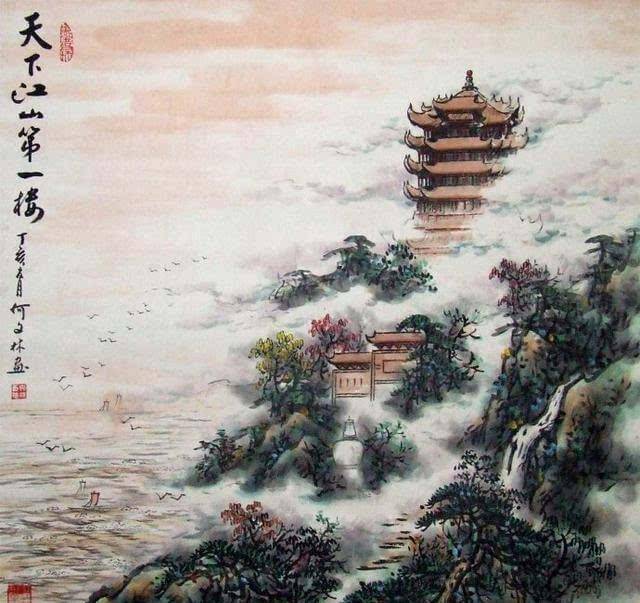 天下江山第一楼
丁亥冬月何文林画